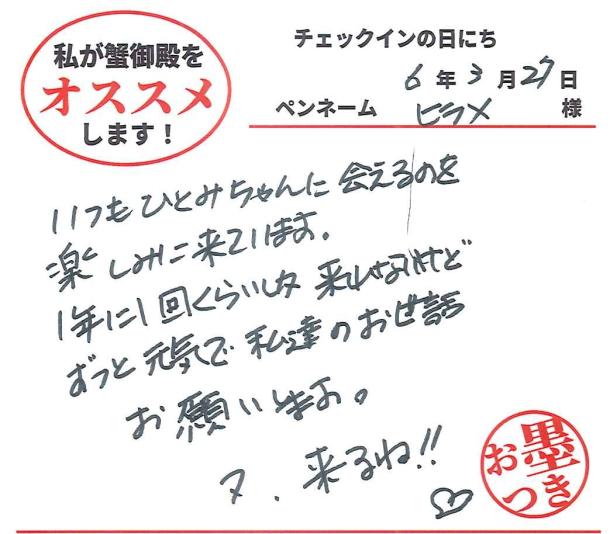 私が蟹御殿を
オススメ
します!
チェックインの日にち
6年3月27日
ペンネーム ヒラメ 様
いつもひとみちゃんに会えるのを
楽しみに来ています。
1年に1回くらいしか来れないけど
ずっと元気で私達のお世話
お願いします。
又、来るね!!
お墨つき